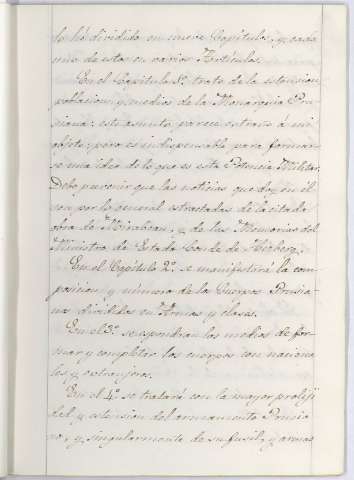 lo hé dividido en nueve Capítulos, y cada
uno de estos en varios Artículos.
En el Capítulo 1º. trato de la estension
poblacion y medios de la Monarquia Pru-
siana: este asunto parece estraño á mi
objeto; pero es indispensable para formar-
se una idea de lo que es esta Potencia Militar.
Debo prevenir que las noticias que doy en él
son por lo general estractadas de la citada
obra de Mirabeau, y de las Memorias del
Ministro de Estado Conde de Herberg.
En el Capítulo 2º. se manifestará la com-
posicion y número de los Cuerpos Prusia-
nos divididos en Armas y clases.
En el 3º. se espondran los medios de for-
mar y completar los cuerpos con naciona-
les y estranjeros.
En el 4º. se tratará con la mayor proliji-
dad, y estension del armamento Prusia-
no, y singularmente de su fusil, y armas